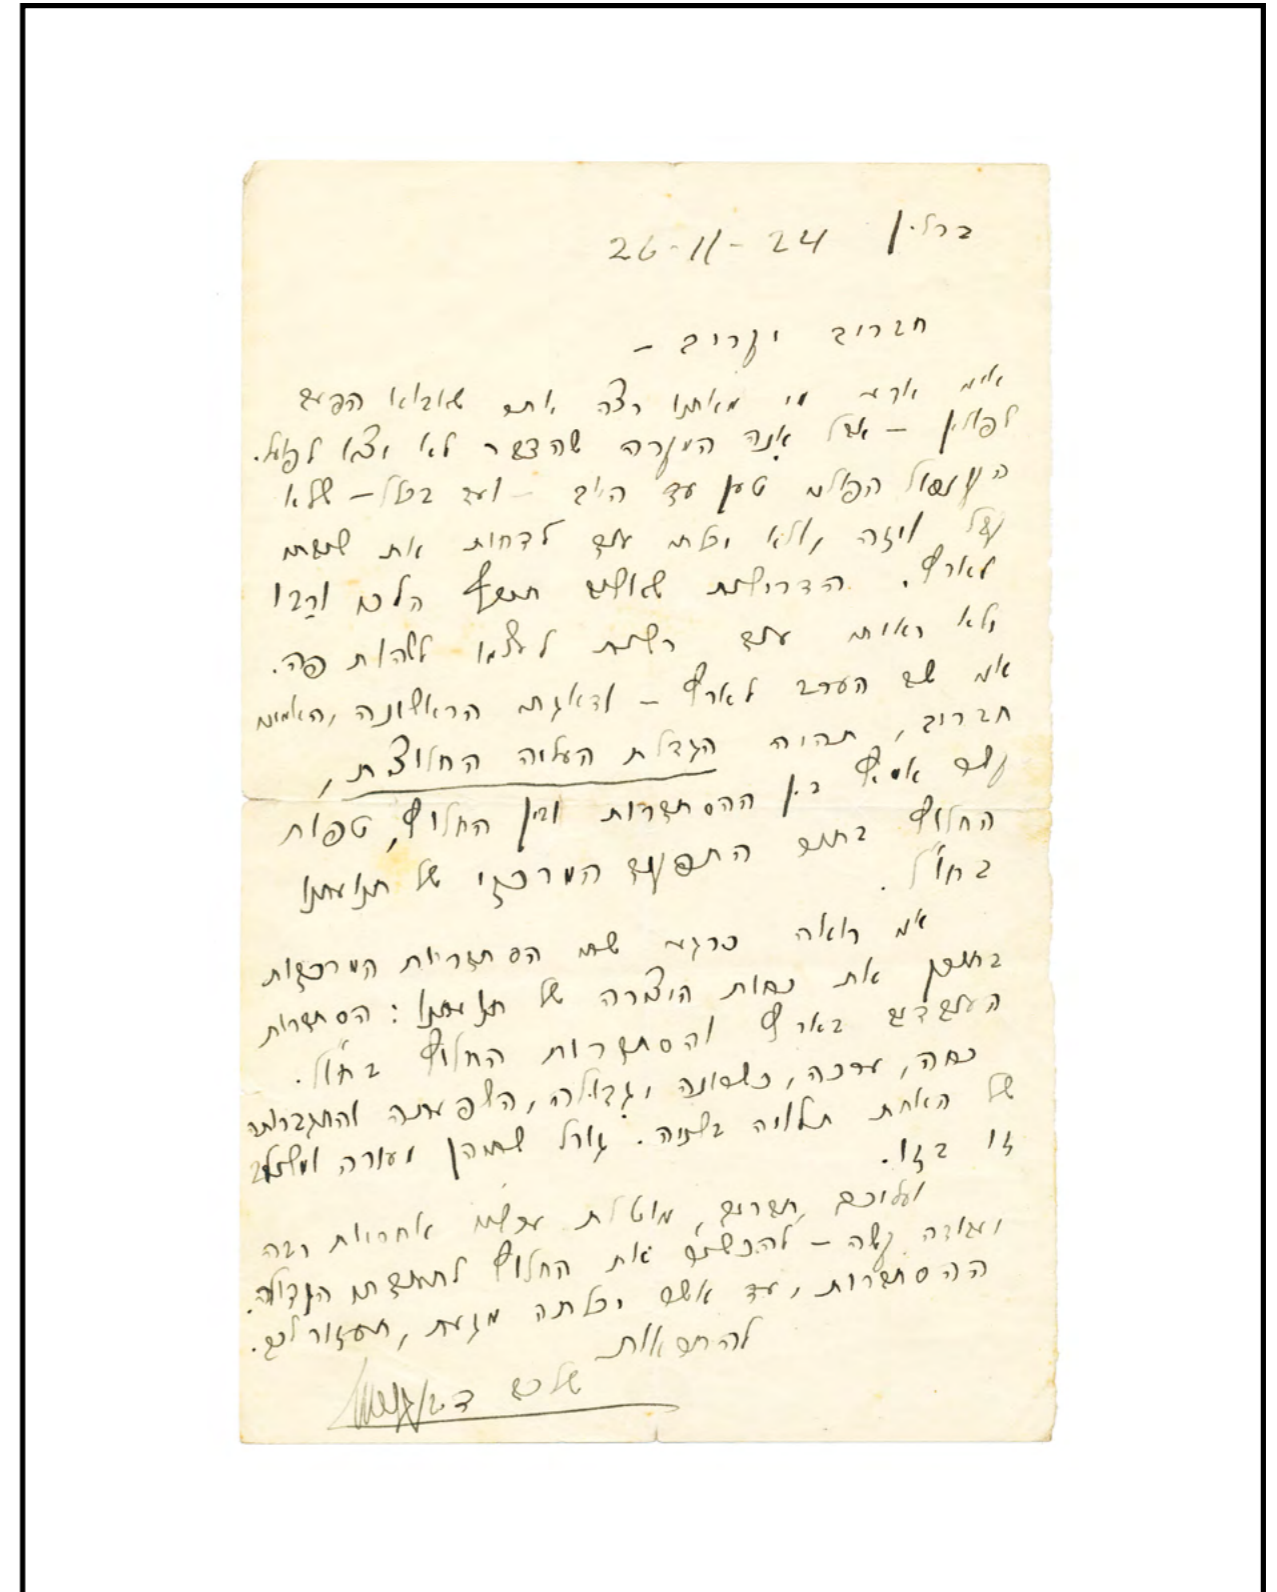 ברלין 26-11-24
חברים יקרים –
איני יודע מי מאתנו רצה יותר שאבוא הפעם
לפולין – אבל אִנה המקרה שהדבר לא יצא לפועל.
הקונסול הפולני טען עד היום – ועד בכלל – שלא
קבל ויזה, ולא יכלתי עוד לדחות את שובי
לארץ. הדרישות שאשוב תכף הלכו ורַבו
ולא ראיתי עוד רשות לעצמי לשהות פה.
אני שב הערב לארץ – ודאגתי הראשונה, האמינו
חברים, תהיה הגדלת העליה החלוצית,
קשר אמיץ בין ההסתדרות ובין החלוץ, טפוח
החלוץ בתור התפקיד המרכזי של תנועתנו
בחו"ל.
אני רואה כרגע שתי הסתדריות המרכזות
בתוכן את כחות היצירה של תנועתנו: הסתדרות
העובדים בארץ והסתדרות החלוץ בחו"ל.
כחה, ערכה, כשרונה וגִדולה, השפעתה והתגברותה
של האחת תלויה בשניה. גורל שתיהן מעורה ומשולב
זו בזו.
ועליכם, חברים, מוטלת עכשיו אחריות רבה
ועבודה קשה – להכשיר את החלוץ לתעודתו הגדולה.
ההסתדרות, עד אשר יכלתה מגעת, תעזור לכם.
להתראות
שלכם ד. בן גוריון